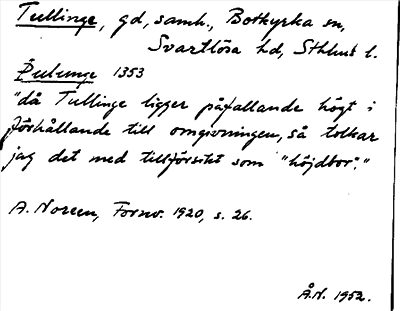 Tullinge, gd, samh., Botkyrka sn,
Svartlösa hd, Sthlms l.
Þulunge 1353
"då Tullinge ligger påfallande högt i
förhållande till omgivningen, så tolkar
jag det med tillförsikt som "höjdbor"."
A. Noreen, Fornv. 1920, s. 26.
Å.N. 1952.